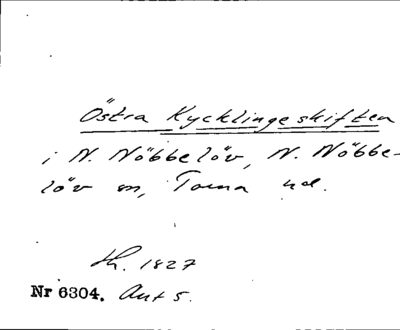 Östra Kycklingeskiften
i N. Nöbbelöv, N. Nöbbe-
löv sn, Torna hd.
1827
Nr 6304. Akt 5.